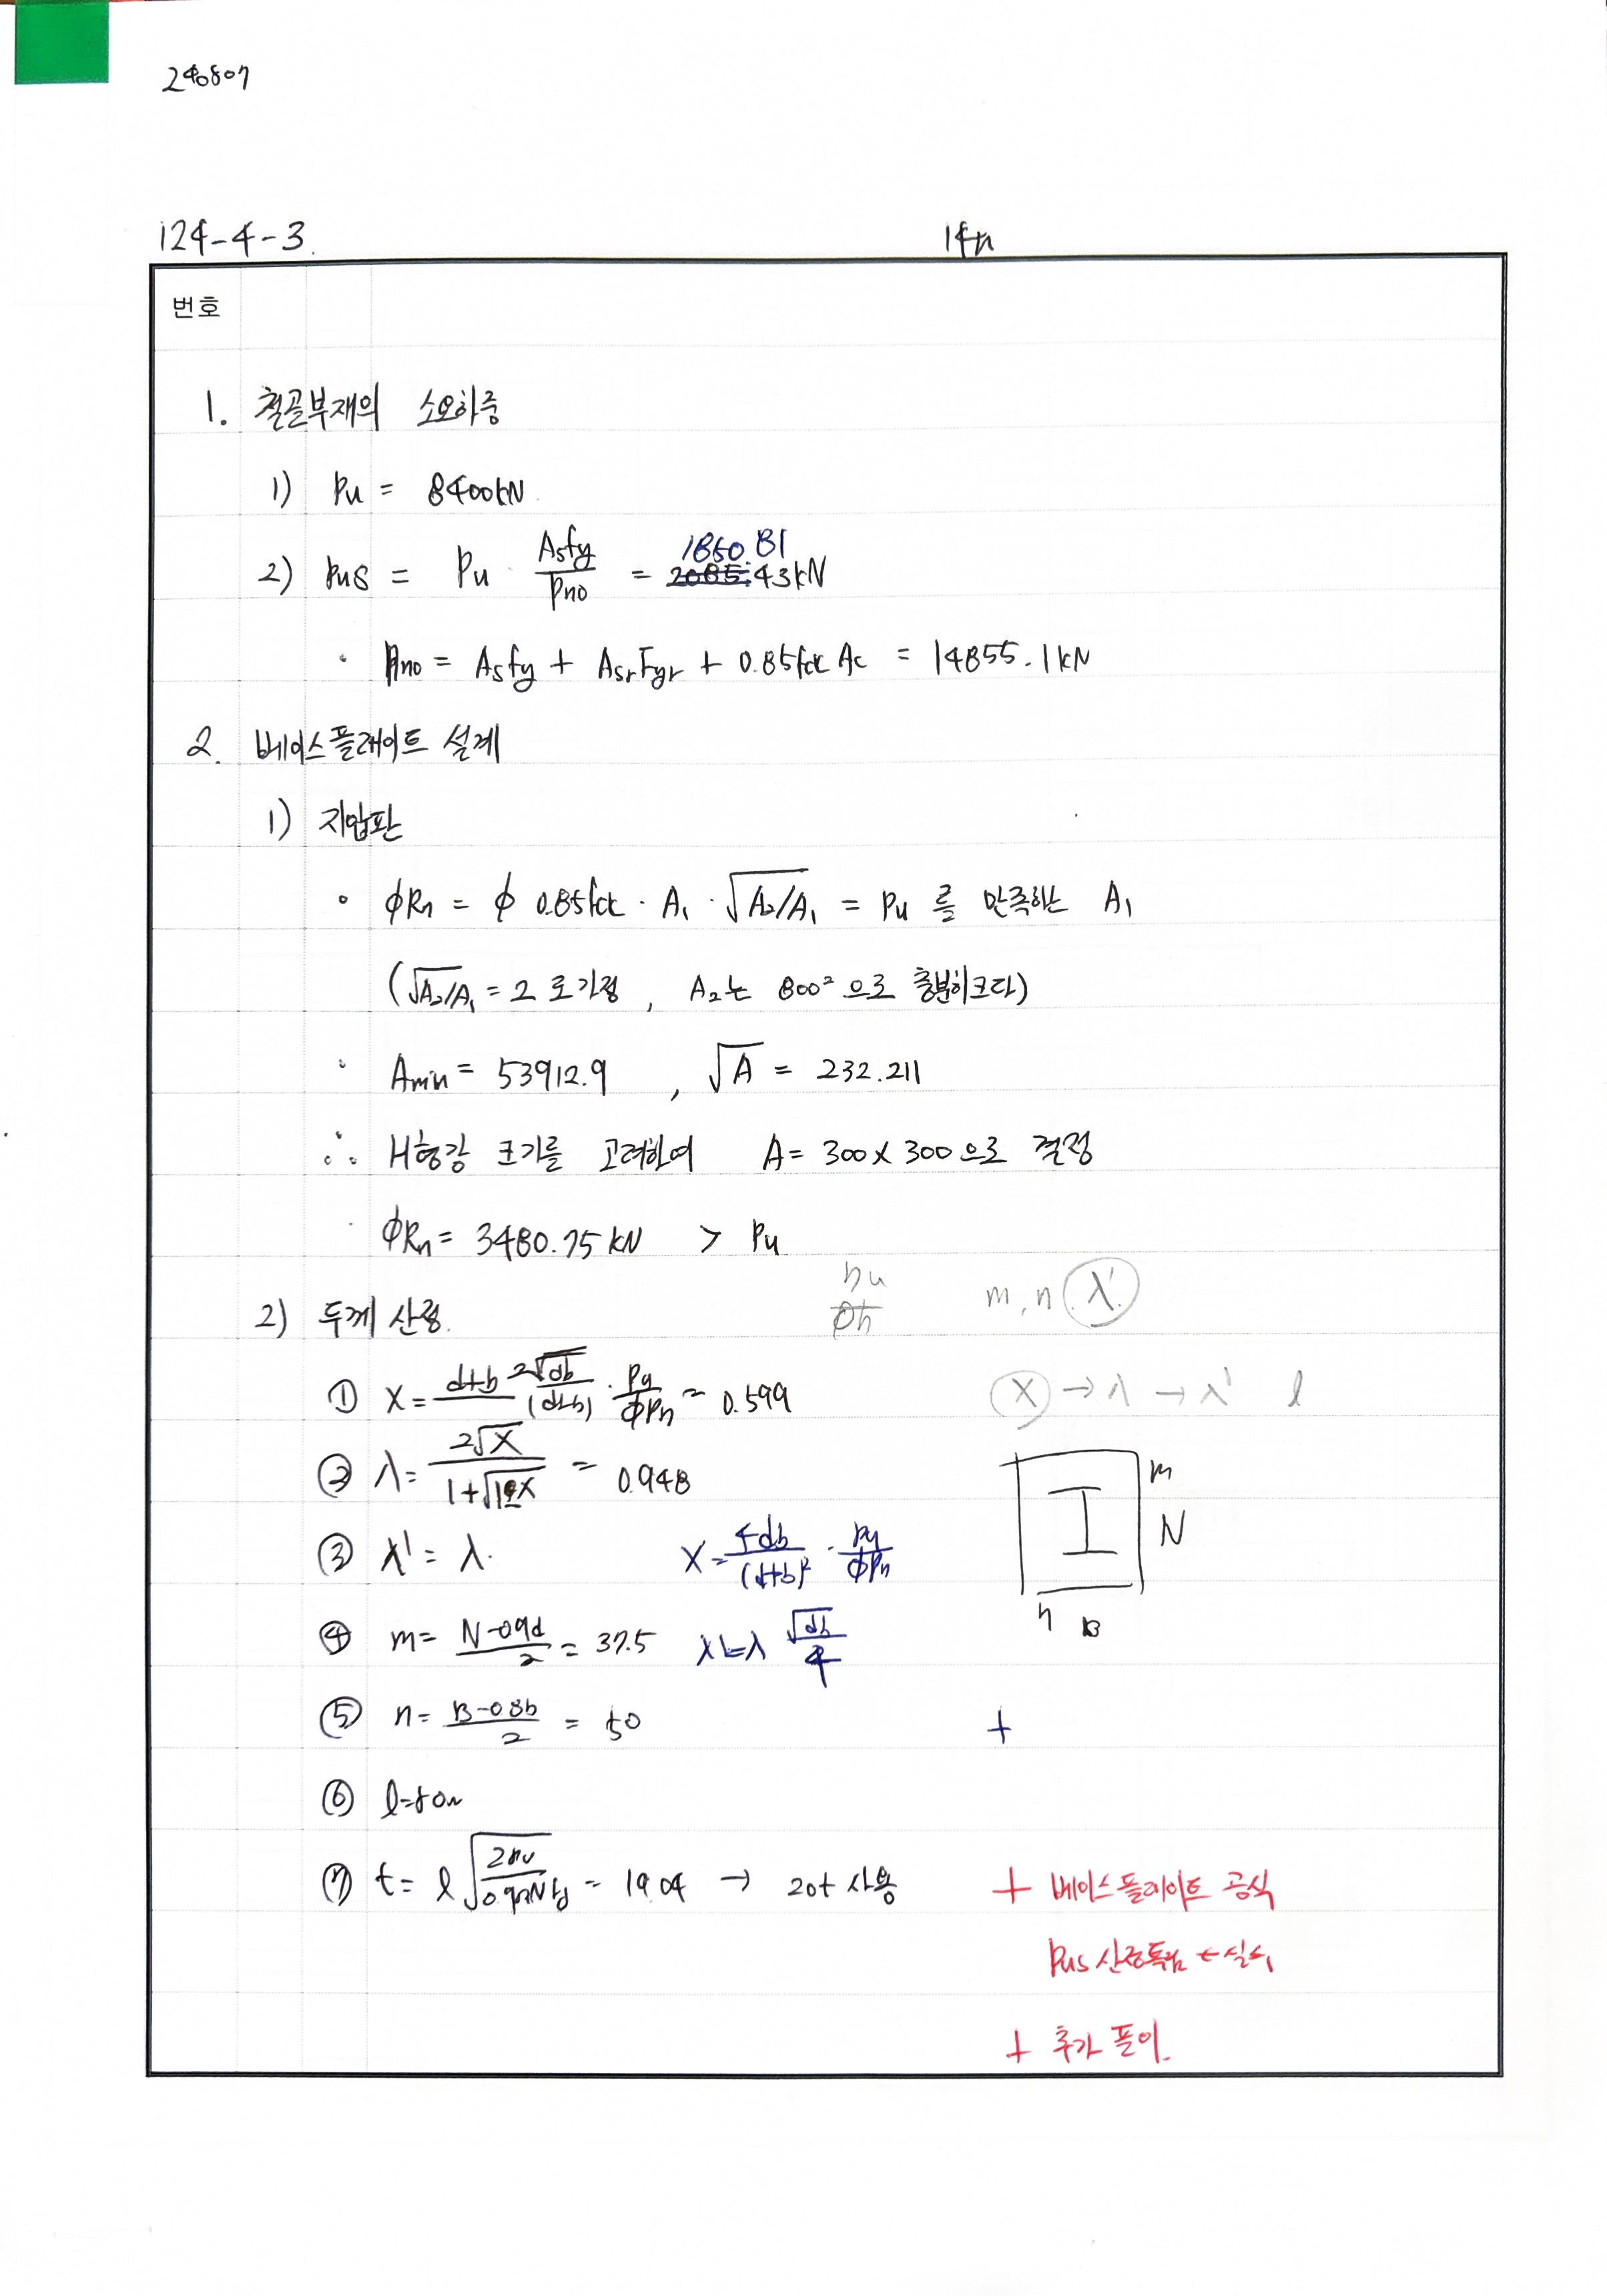 240807
124-4-3.
번호
1. 철골부재의 소요하중
1) Pu = 8400kN
2) Pus = Pu · Asfy / Pno = 1850.81 2085.43kN
· Pno = Asfy + AsrFyr + 0.85fck Ac = 14855.1kN
2. 베이스플레이트 설계
1) 지압판
· ϕRn = ϕ 0.85fck · A1 · √A2/A1 = Pu 를 만족하는 A1
(√A2/A1 = 2 로 가정, A2는 800² 으로 충분히크다)
· Amin = 53912.9 , √A = 232.211
∴ H형강 크기를 고려하여 A = 300 x 300 으로 결정
· ϕRn = 3480.75 kN > Pu
2) 두께 산정.
m, n, λ'
① X = d+b 2√db / (d+b) · Pu / ϕPn = 0.599
X → λ → λ' l
② λ = 2√X / 1+√1-X = 0.948
③ λ' = λ.
X = 4db / (d+b)² · Pu / ϕPn
m
N
n B
④ m = N-0.9d / 2 = 37.5
λ'=λ √db / 4
⑤ n = B-0.8b / 2 = 50
+
⑥ l=50
⑦ t = l = 19.04 → 20t 사용
+ 베이스플레이트 공식
Pus 산정 ← 실수
+ 추가 풀이.